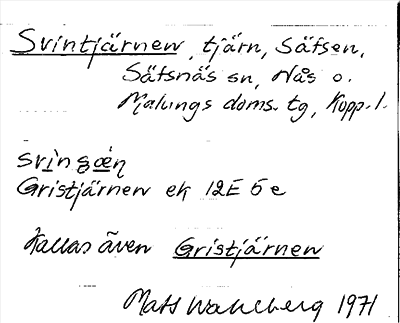 Svintjärnen, tjärn, Säfsen,
Säfsnäs sn, Nås o.
Malungs doms. tg, Kopp. l.
Gristjärnen ek 12E 5e
Kallas även Gristjärnen
Mats Wahlberg 1971